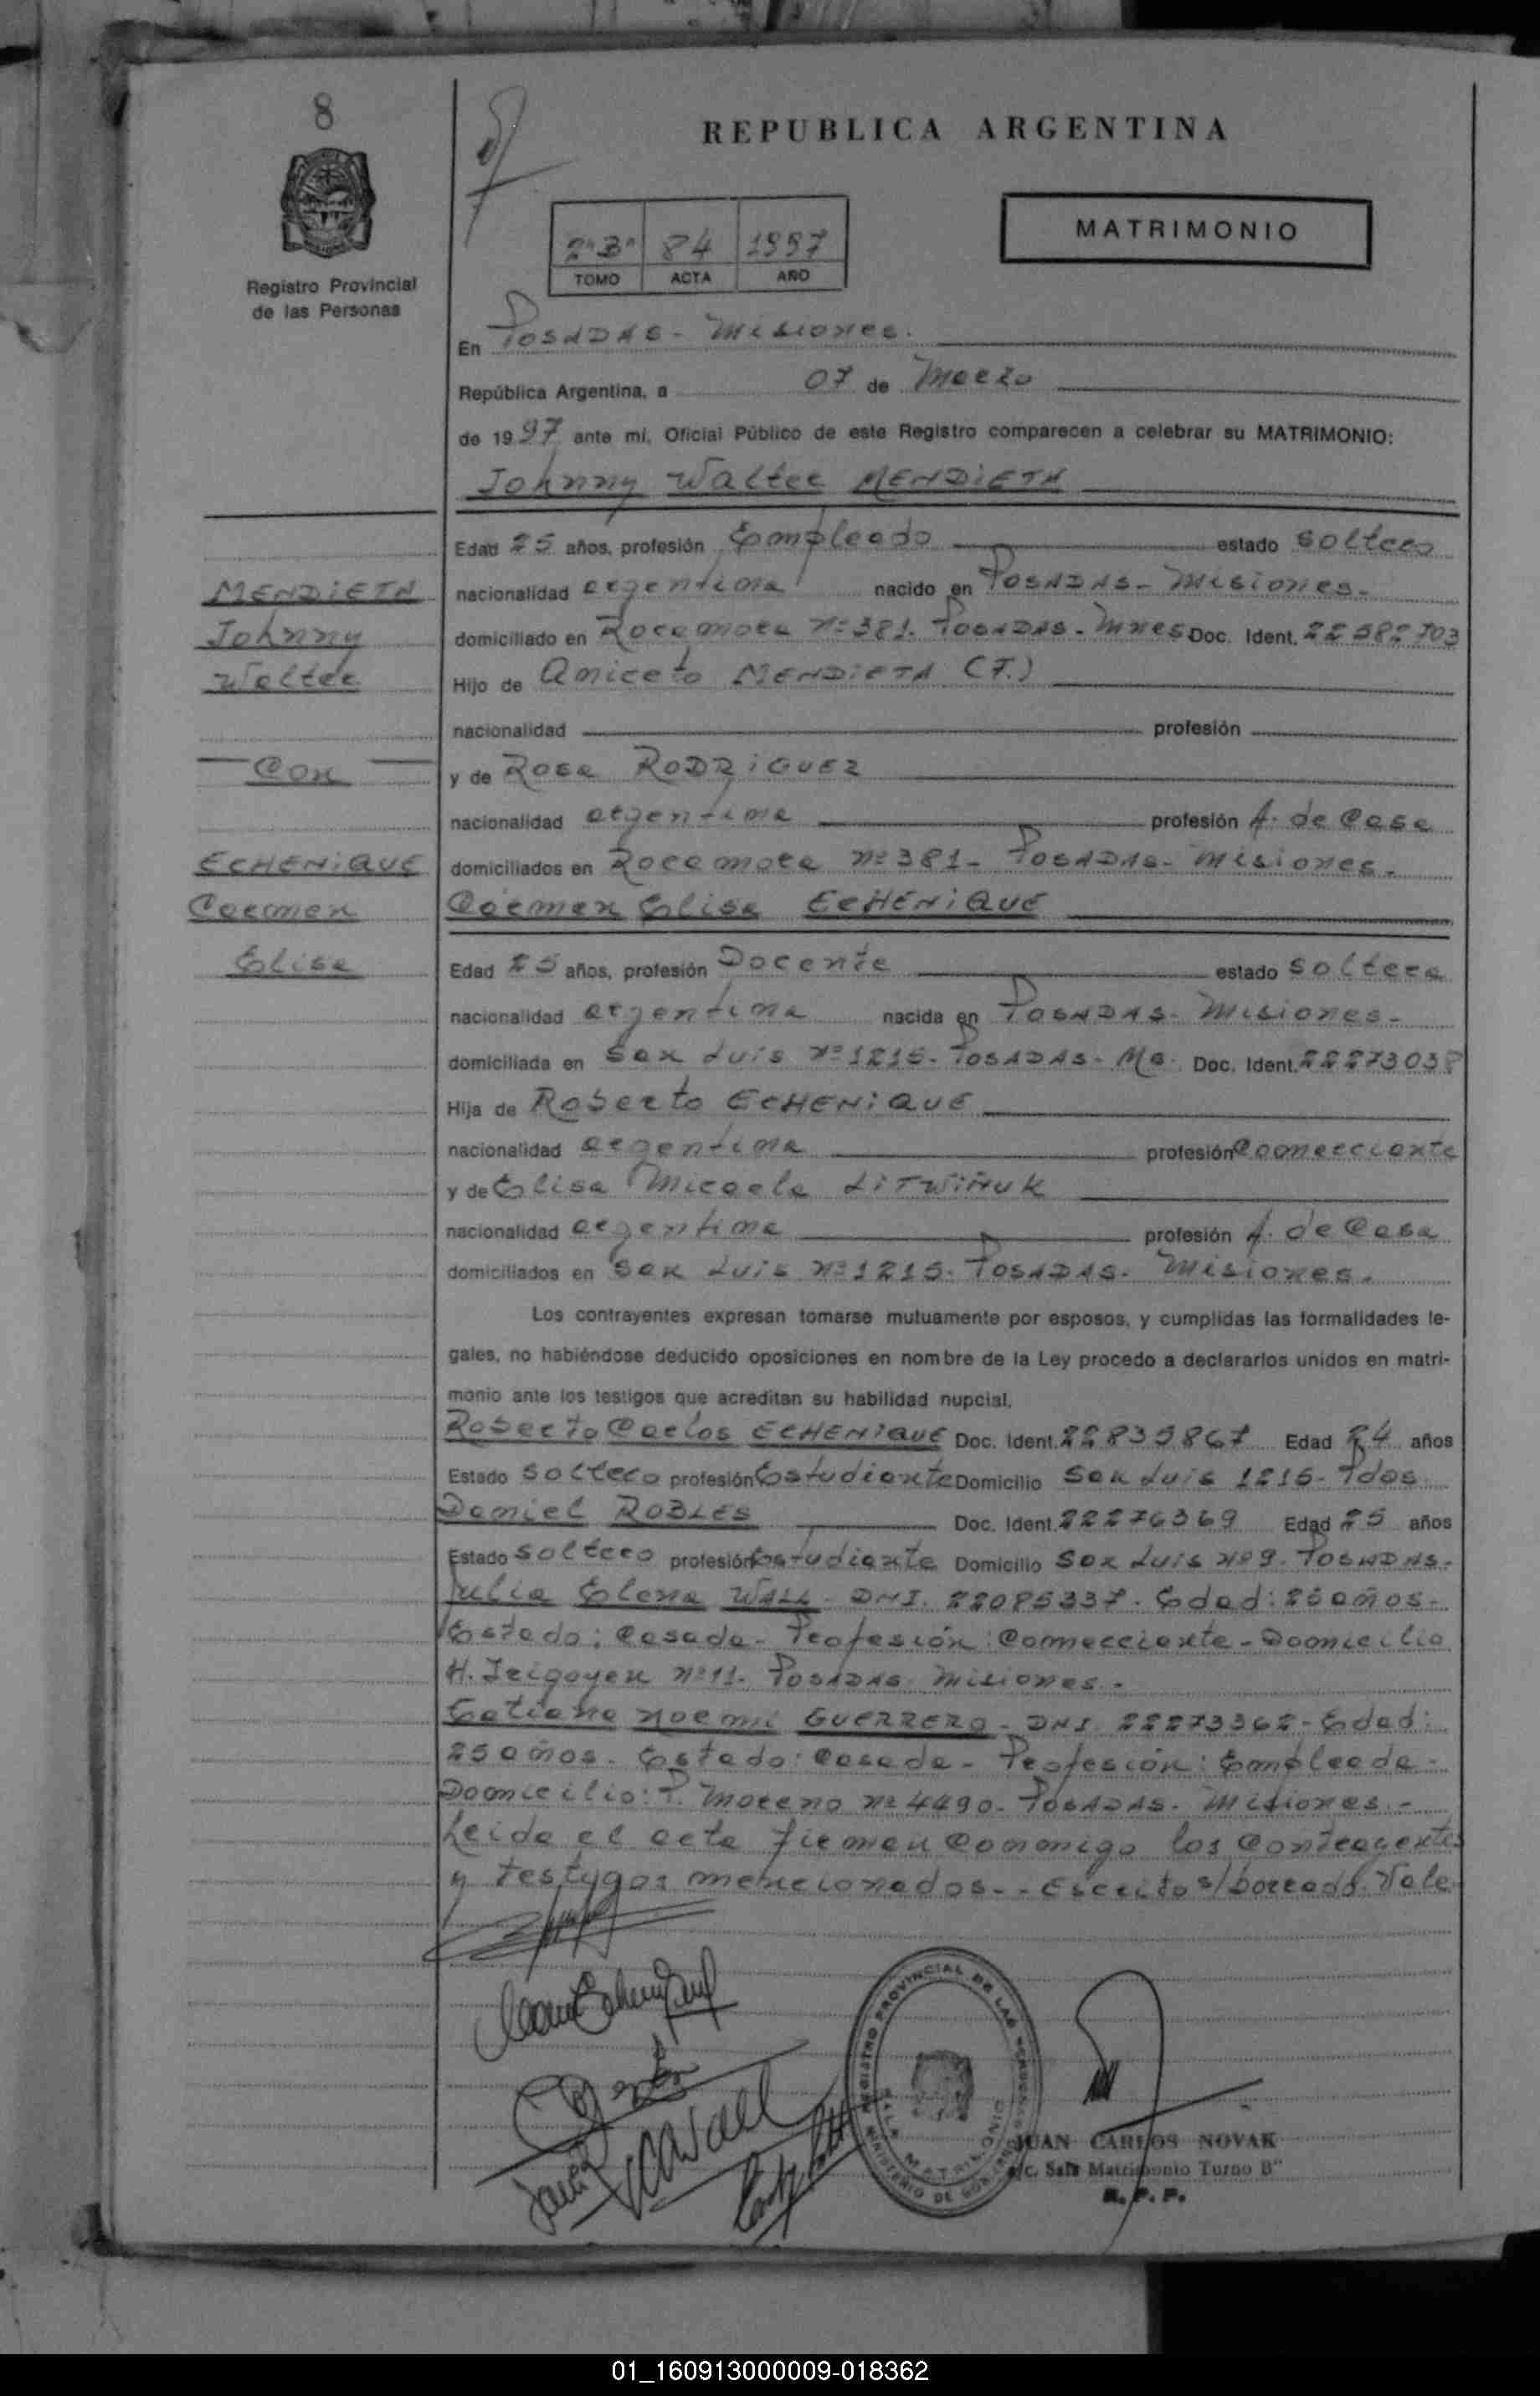 8
REPUBLICA ARGENTINA
MATRIMONIO
2º "B" 84 1997
TOMO ACTA AÑO
Registro Provincial
de las Personas
En POSADAS - Misiones.
República Argentina, a 07 de Marzo
de 1997 ante mí, Oficial Público de este Registro comparecen a celebrar su MATRIMONIO:
Johnny Walter MENDIETA
Edad 25 años, profesión Empleado estado soltero
MENDIETA
Johnny
Walter
Con
ECHENIQUE
Carmen
Elisa
nacionalidad argentina nacido en POSADAS - Misiones.
domiciliado en Rocamora Nº 381. POSADAS - Mnes Doc. Ident. 22582703
Hijo de Aniceto MENDIETA (F.)
nacionalidad profesión
y de Rosa RODRIGUEZ
nacionalidad argentina profesión A. de Casa
domiciliados en Rocamora Nº 381 - POSADAS - Misiones.
Carmen Elisa ECHENIQUE
Edad 25 años, profesión Docente estado soltera
nacionalidad argentina nacida en POSADAS - Misiones -
domiciliada en San Luis Nº 1215 - POSADAS - Ms. Doc. Ident. 22273038
Hija de Roberto ECHENIQUE
nacionalidad argentina profesión Comerciante
y de Elisa Micaela LITWIÑUK
nacionalidad argentina profesión A. de Casa
domiciliados en San Luis Nº 1215 - POSADAS - Misiones.
Los contrayentes expresan tomarse mutuamente por esposos, y cumplidas las formalidades le-
gales, no habiéndose deducido oposiciones en nombre de la Ley procedo a declararlos unidos en matri-
monio ante los testigos que acreditan su habilidad nupcial.
Roberto Carlos ECHENIQUE Doc. Ident. 22835867 Edad 24 años
Estado soltero profesión Estudiante Domicilio San Luis 1215 - Pdas.
Daniel ROBLES Doc. Ident. 22276369 Edad 25 años
Estado soltero profesión Estudiante Domicilio San Luis Nº 9. POSADAS.
Julia Elena WALL - DNI. 22085337 - Edad: 25 años -
Estado: Casada - Profesión: Comerciante - Domicilio
H. Irigoyen Nº 11 - POSADAS Misiones -
Tatiana Noemi GUERRERO - DNI. 22273362 - Edad:
25 años - Estado: Casada - Profesión: Empleada -
Domicilio: P. Moreno Nº 4490 - POSADAS - Misiones -
Leida el acta firman conmigo los contrayentes
y testygos mencionados - - Escrito s/borrado. Vale
REGISTRO PROVINCIAL DE LAS PERSONAS
MINISTERIO DE GOBIERNO
SALA MATRIMONIO
JUAN CARLOS NOVAK
a/c. Sala Matrimonio Turno B"
R. P. P.
01_160913000009-018362